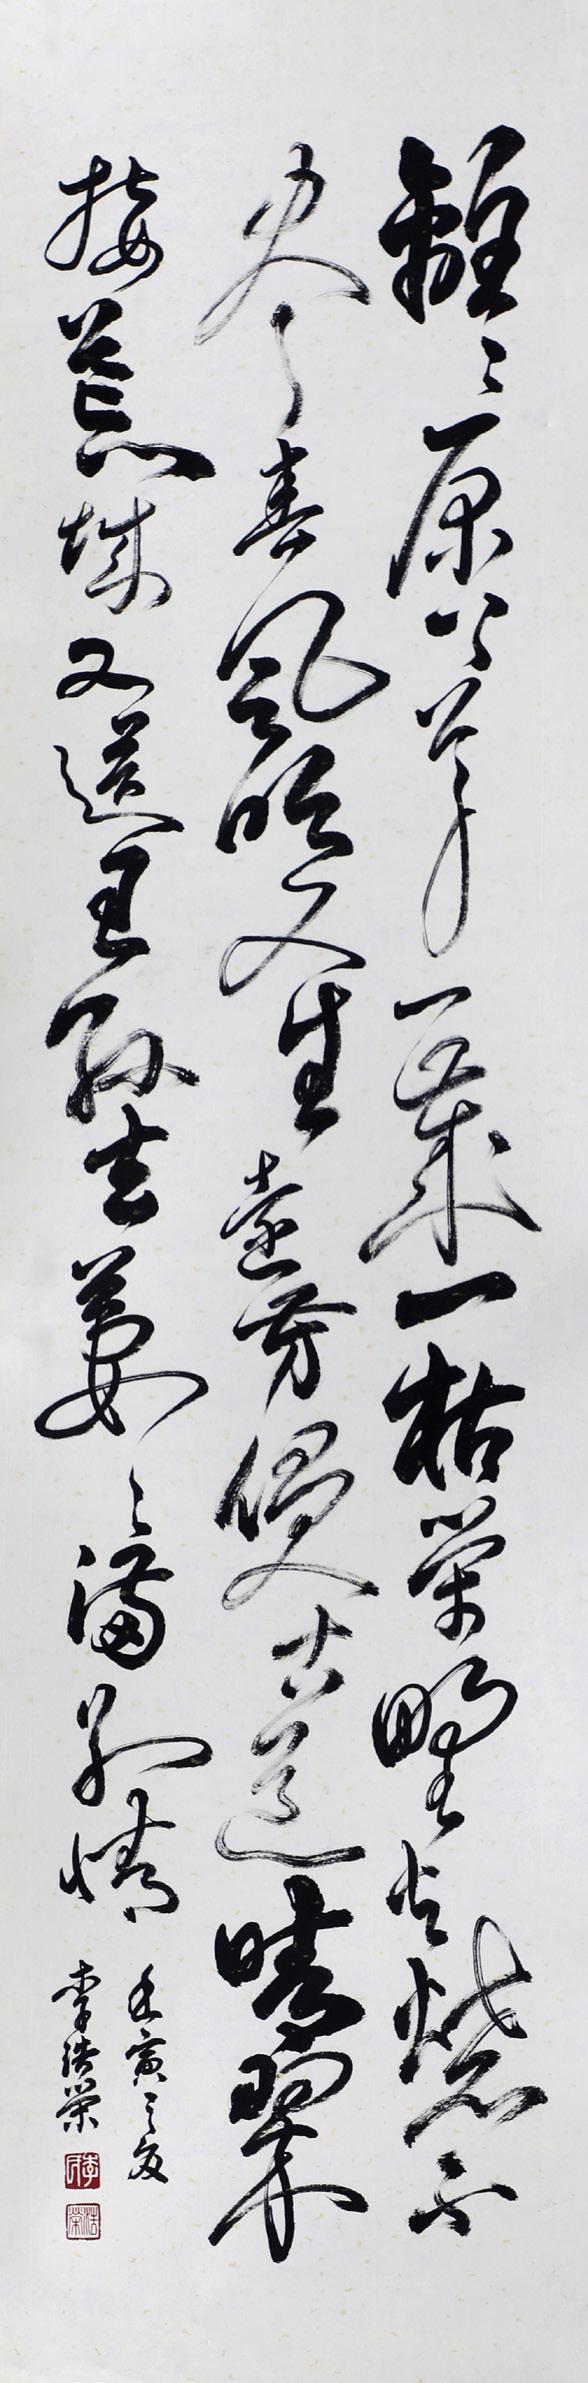 離〻原上草一歲一枯榮野火燒不
盡春風吹又生遠芳侵古道晴翠
接荒城又送王孫去萋〻滿別情
壬寅之夏
李浩榮
李氏
浩榮